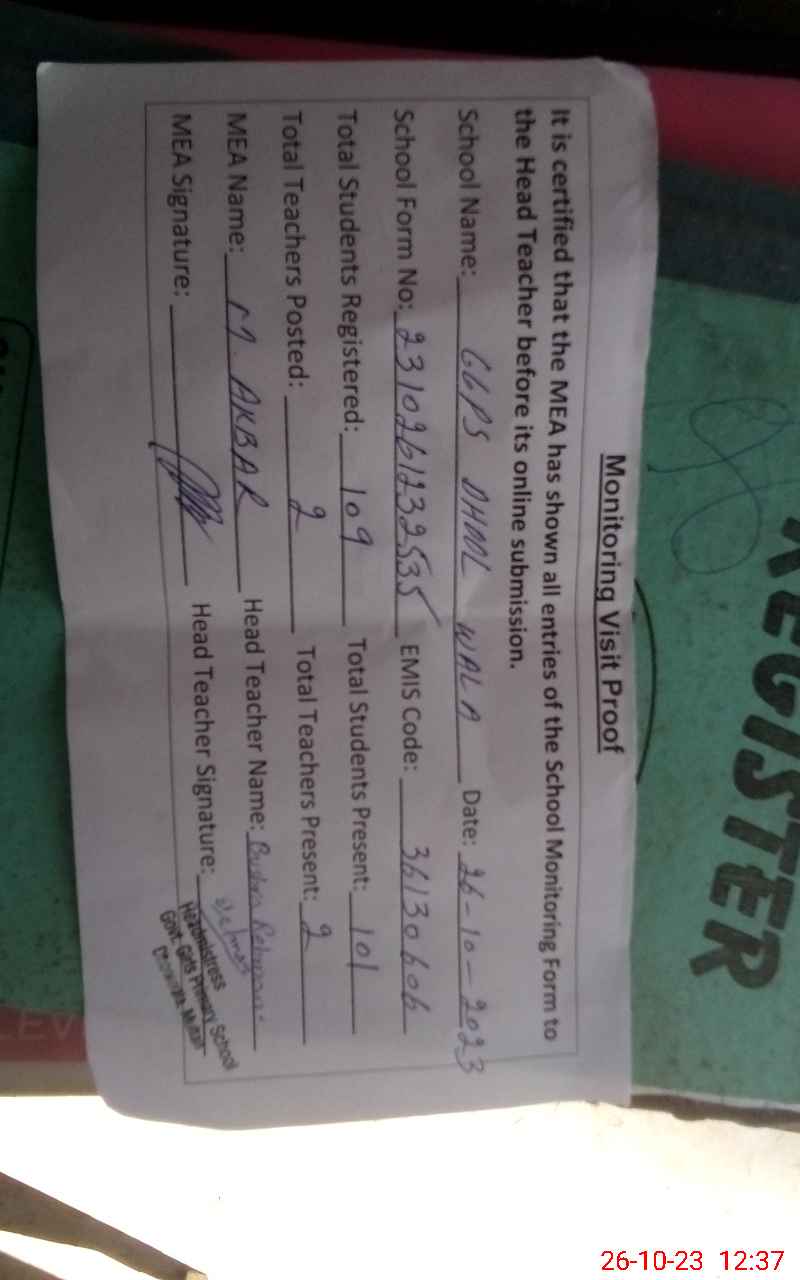 REGISTER
Monitoring Visit Proof
It is certified that the MEA has shown all entries of the School Monitoring Form to
the Head Teacher before its online submission.
School Name: GGPS DHOOL WALA Date: 26-10-2023
School Form No: 2310261232535 EMIS Code: 36130606
Total Students Registered: 109 Total Students Present: 101
Total Teachers Posted: 2 Total Teachers Present: 2
MEA Name: M. AKBAR Head Teacher Name: Bushra Rehman
MEA Signature: Head Teacher Signature:
Headmistress
Govt. Girls Primary School
26-10-23 12:37